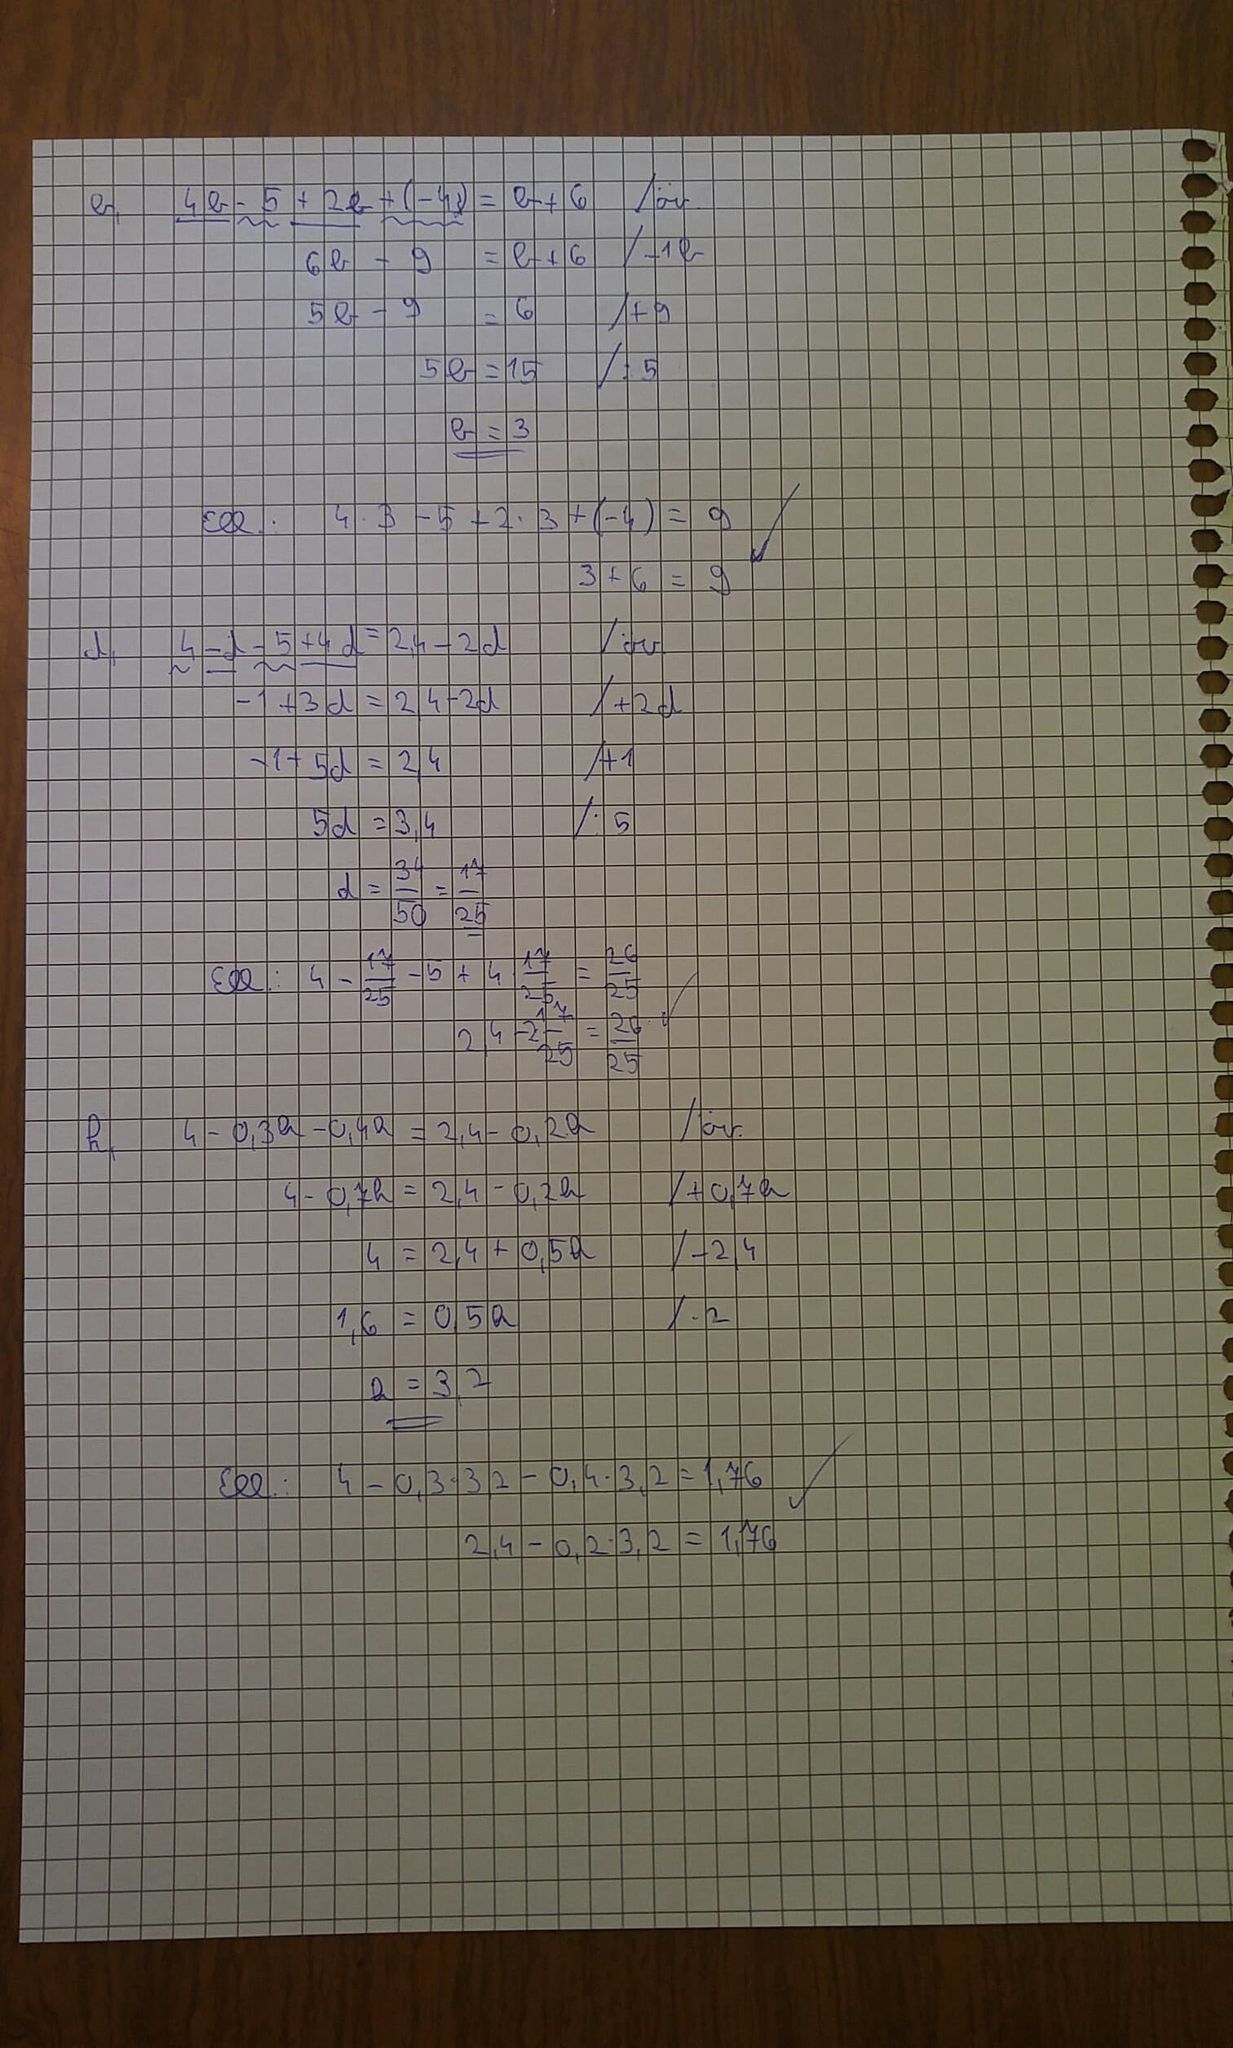 b, 4b - 5 + 2b + (-4) = b + 6 /öv.
6b - 9 = b + 6 /-1b
5b - 9 = 6 /+9
5b = 15 /:5
b = 3
Ell.: 4·3 - 5 + 2·3 + (-4) = 9 ✓
3 + 6 = 9
d, 4 - d - 5 + 4d = 2,4 - 2d /öv.
-1 + 3d = 2,4 - 2d /+2d
-1 + 5d = 2,4 /+1
5d = 3,4 /:5
d = 34/50 = 17/25
Ell.: 4 - 17/25 - 5 + 4·17/25 = 26/25 ✓
2,4 - 2·17/25 = 26/25
h, 4 - 0,3h - 0,4h = 2,4 - 0,2h /öv.
4 - 0,7h = 2,4 - 0,2h /+0,7h
4 = 2,4 + 0,5h /-2,4
1,6 = 0,5h /·2
h = 3,2
Ell.: 4 - 0,3·3,2 - 0,4·3,2 = 1,76 ✓
2,4 - 0,2·3,2 = 1,76